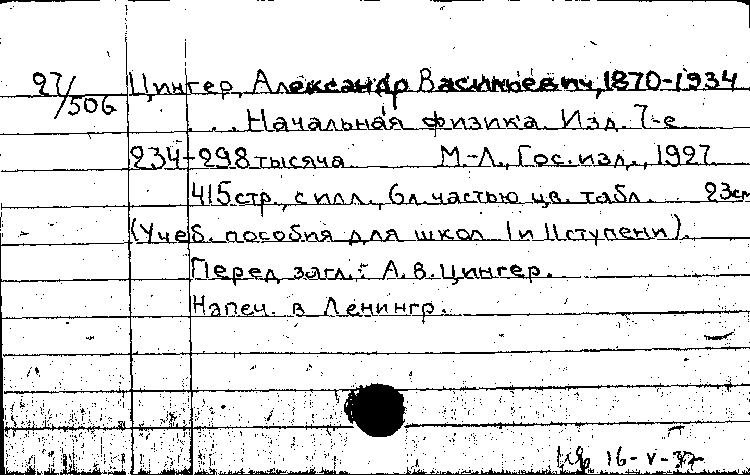 27/506 Цингер, Александр Васильевич, 1870-1934
... Начальная физика. Изд. 7-е
234-298 тысяча. М.-Л., Гос. изд., 1927
415 стр., с илл., 6 л. частью цв. табл. 23 см
(Учеб. пособия для школ I и II ступени).
Перед загл.: А. В. Цингер.
Напеч. в Ленингр.
16-V-37